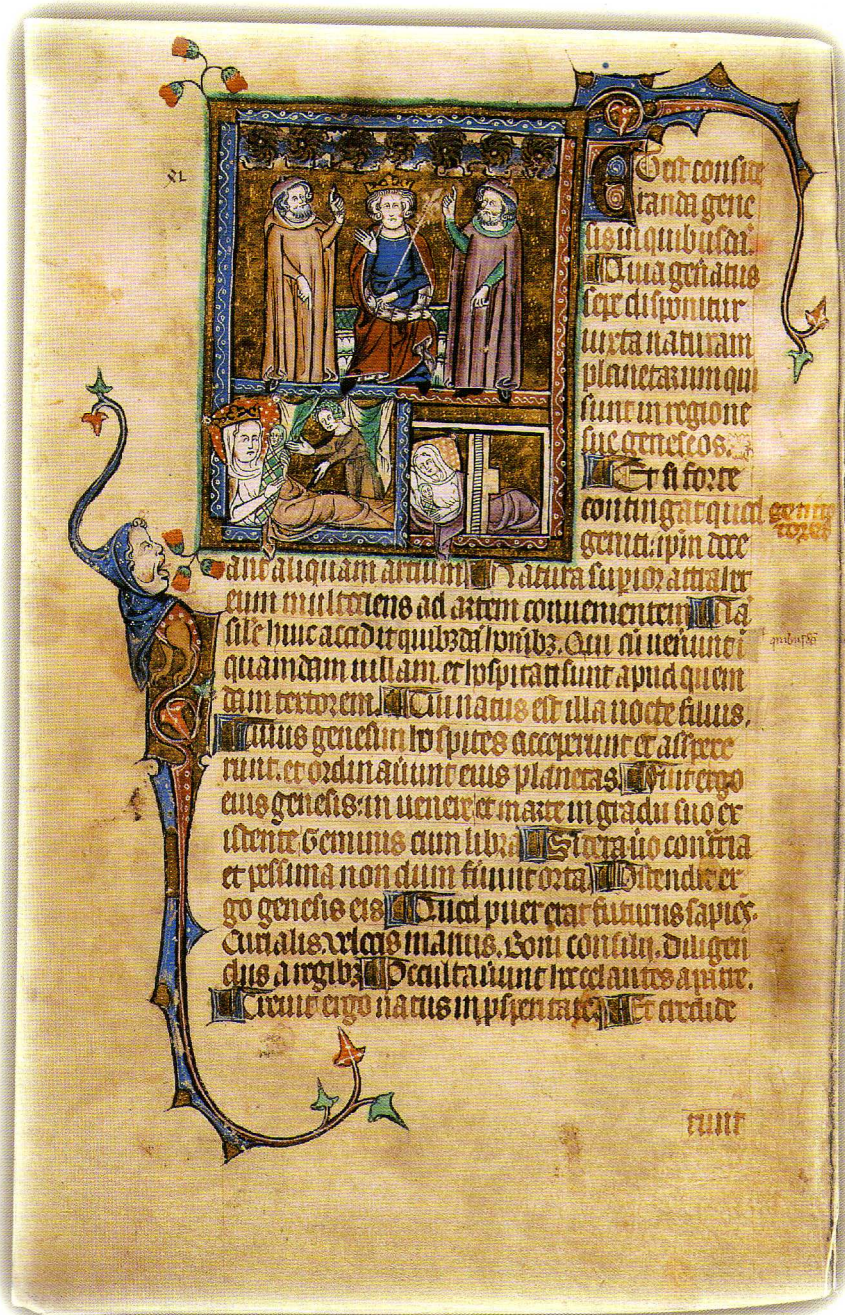 xl
Est consite
randa gene
sis in quibusdā.
Quia gen̄atus
sepe disponitur
iuxta naturam
planetarum qui
sunt in regione
sue geneseos.
Et si forte
contingat quod geni
tores
geniti: ip̄m doce
ant aliquam artium. Natura supior attrahet
eum multociens ad artem convenientem Na
sile huic accidit quibȝdā hoı̄bȝ. Qui cū ueneunt ī quibusdā
quamdam uillam. et hospitati sunt apud quem
dam textorem. Cui natus est illa nocte filius.
Cuius genesim hospites acceperunt et asspexe
runt. et ordinauūnt eius planetas. Fuit ergo
eius genesis: in uenere et marte in gradu suo ex
istente Geminis cum libra Sidera ūo cont̄ria
et pessima non dum fūunt orta Ostendit er
go genesis eis Quod puer erat futurus sapiēs.
Curialis. velocis manus. Boni consilii. diligen
dus a regibȝ Occultauūnt hec celantes a patre.
Creuit ergo natus in pspentate Et crecide
runt